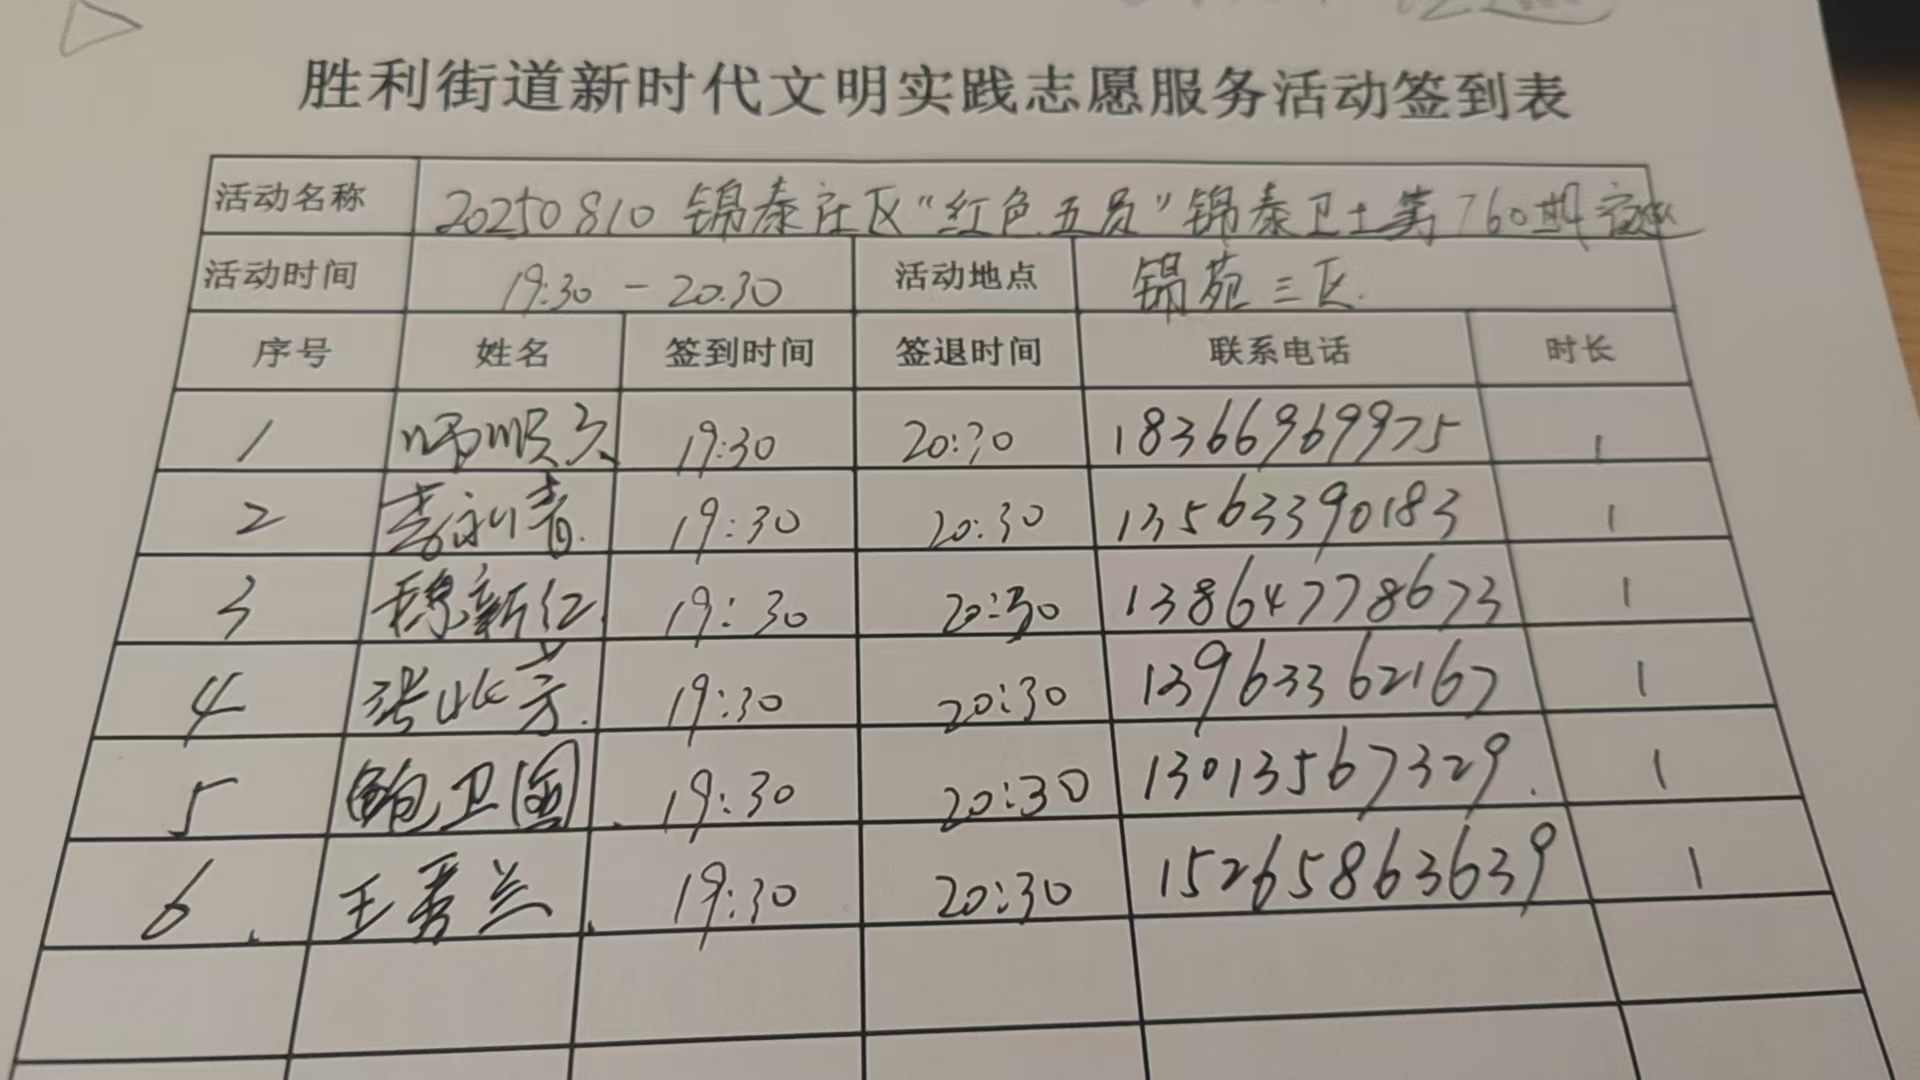 胜利街道新时代文明实践志愿服务活动签到表
活动名称 20250810 锦泰社区“红色五员”锦泰卫士第760期夜巡
活动时间 19:30 - 20:30 活动地点 锦苑三区
序号 姓名 签到时间 签退时间 联系电话 时长
1 19:30 20:30 18366969975 1
2 李永青 19:30 20:30 13563390183 1
3 穆新红 19:30 20:30 13864778673 1
4 张兆方 19:30 20:30 13963362167 1
5 鲍卫国 19:30 20:30 13013567329 1
6 王秀兰 19:30 20:30 15265863639 1